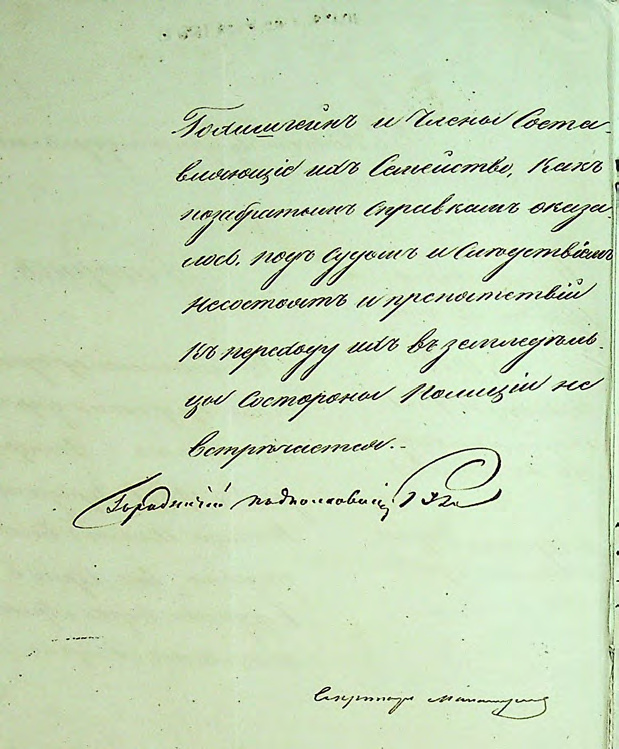 и Члены Соста-
вляющіе ихъ Семейство, Какъ
позабратымъ Справкамъ оказа-
лось, подъ Судомъ и Слѣдствіемъ
несостоятъ и препятствій
Къ переходу ихъ въ земледѣль-
цы Состороны Полиціи не
встрѣчается.-
Городничій Подполковникъ
Секретарь